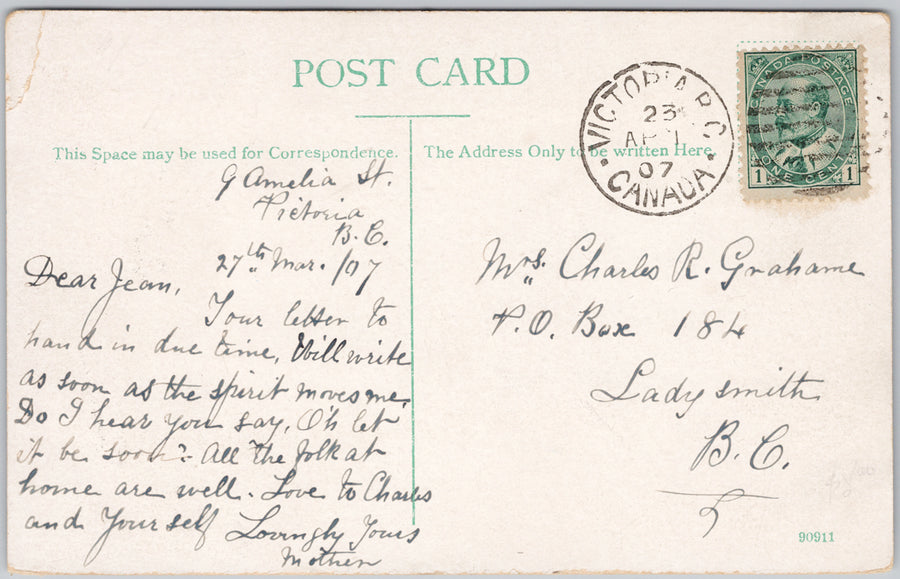 POST CARD
This Space may be used for Correspondence.
The Address Only to be written Here.
9 Amelia St.
Victoria
B.C.
27th Mar. /07
Dear Jean,
Your letter to
hand in due time, Will write
as soon as the spirit moves me.
Do I hear you say, O'h let
it be soon? All the folk at
home are well. Love to Charles
and Yourself Lovingly Yours
Mother
VICTORIA B.C.
23
AP 1
07
CANADA
CANADA POSTAGE
ONE CENT
1 1
Mrs. Charles R. Grahame
P.O. Box 184
Ladysmith
B.C.
90911